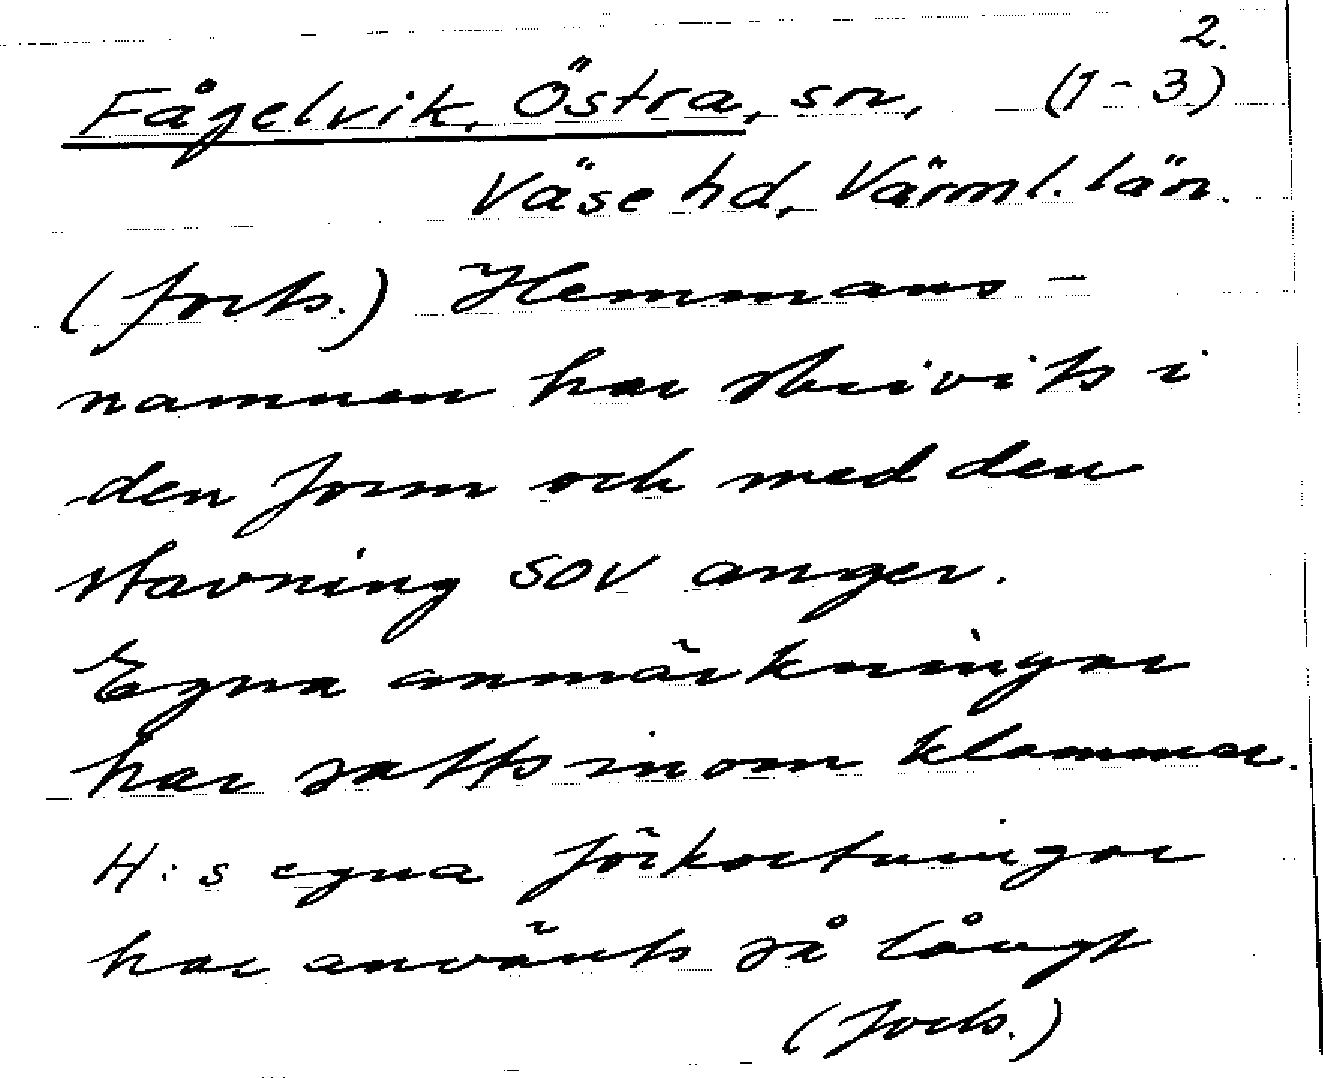 2.
Fågelvik, Östra, sn, (1-3)
Väse hd, Värml. län.
(forts.) Hemmans-
namnen har skrivits i
den form och med den
stavning SOV anger.
Egna anmärkningar
har satts inom klammer.
H:s egna förkortningar
har använts så långt
(forts.)